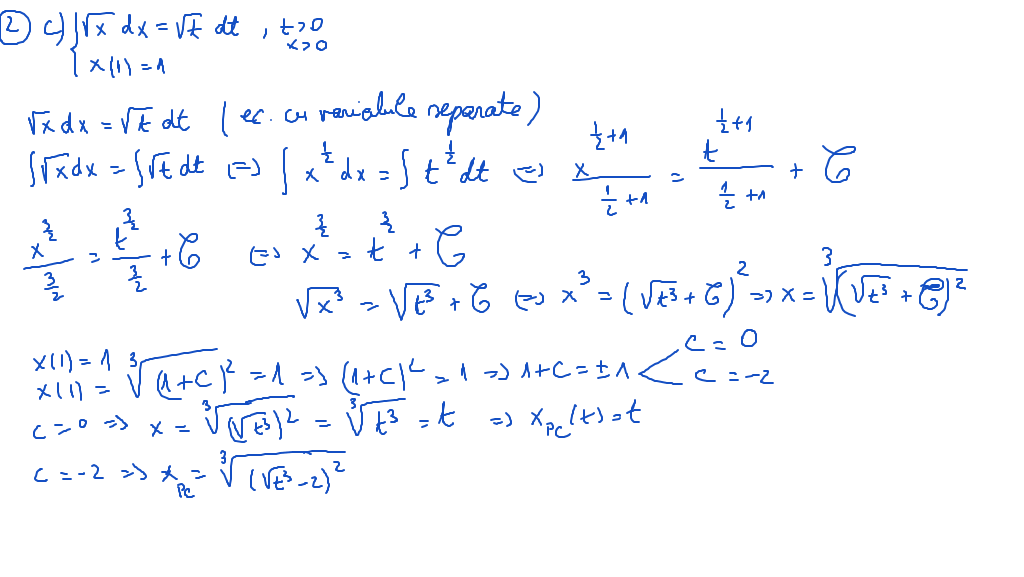 2) c) { √x dx = √t dt , t>0
x>0
x(1) = 1
√x dx = √t dt ( ec. cu variabile separate )
∫√x dx = ∫√t dt (=) ∫ x^{1/2} dx = ∫ t^{1/2} dt (=) x^{1/2+1}/(1/2+1) = t^{1/2+1}/(1/2+1) + C
x^{3/2}/(3/2) = t^{3/2}/(3/2) + C (=) x^{3/2} = t^{3/2} + C
√x³ = √t³ + C (=) x³ = (√t³ + C)² => x = ∛((√t³ + C)²)
x(1) = 1
x(1) = ∛((1+C)²) = 1 => (1+C)² = 1 => 1+C = ±1 < c = 0
c = -2
c = 0 => x = ∛((√t³)²) = ∛(t³) = t => x_{PC}(t) = t
c = -2 => x_{PC} = ∛((√t³ - 2)²)